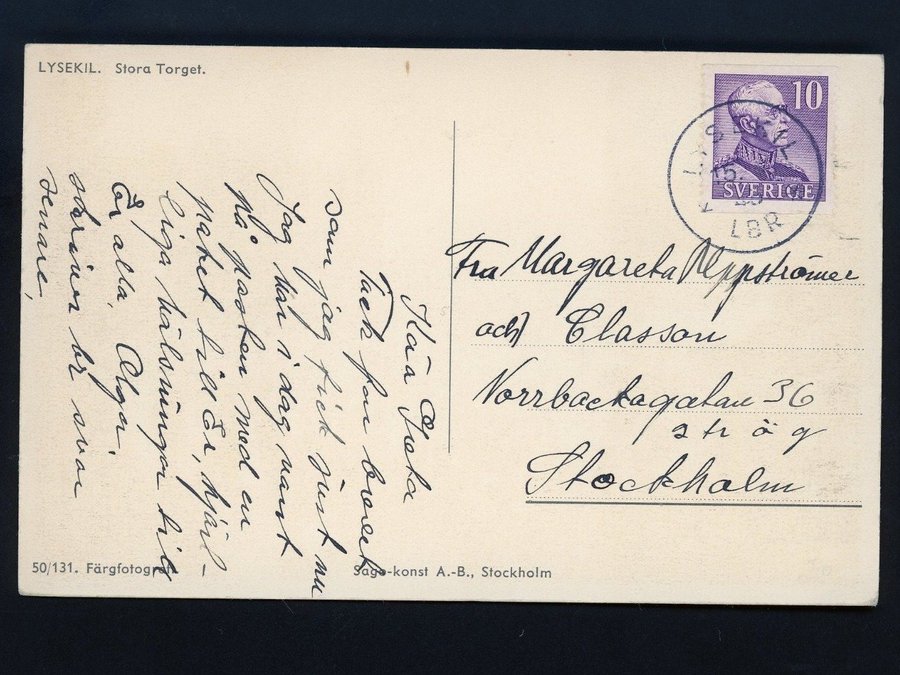 LYSEKIL. Stora Torget.
10
SVERIGE
LYSEKIL
15.
LBR
Kära Greta
Tack for brevet
som jag fick just nu
Jag har i dag varit
på posten med en
paket till Er, hjärt-
liga hälsningar till
Er alla, Olga.
skriver br svar
senare,
Fru Margareta Uppströmer
och Classon
Norrbackagatan 36
2 tr ö g
Stockholm
50/131. Färgfotografi.
Sago-konst A.-B., Stockholm